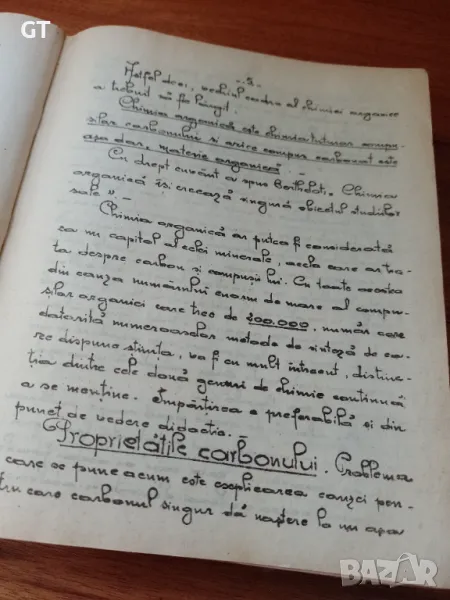 GT
- 2 -
Astfel deci, vechiul cadru al chimiei organice
a trebuit să fie lărgit.
Chimia organică este chimia tuturor compu-
șilor carbonului și orice compus carbonat este
așa dar, materie organică. -
Cu drept cuvânt a spus Berthelot: „Chimia
organică își creează singură obiectul studiilor
sale". -
Chimia organică ar putea fi considerată
ca un capitol al celei minerale, acela care ar tra-
ta despre carbon și compușii lui. Cu toate acestea
din cauza numărului enorm de mare al compu-
șilor organici care trec de 200.000, număr care
datorită numeroaselor metode de sinteză de ca-
re dispune știința, va fi cu mult întrecut, distinc-
ția dintre cele două genuri de chimie continuă
a se menține. Împărțirea e preferabilă și din
punct de vedere didactic.
Proprietățile carbonului. Problema
care se pune acum este explicarea cauzei pen-
tru care carbonul singur dă naștere la un așa
bazar.bg